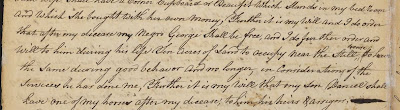 and Which She bought with her own Money, Further it is my Will and I do order
that after my disease my Negro George Shall be free, and I do further order and
Will to him during his life Ten Acres of Land to occupy near the Still
the Same during good behavior and no longer, in Consideration of the
Services he has done me, Further it is my Will that my Son Daniel Shall
have one of my horses after my disease, to him his heirs & assigns,